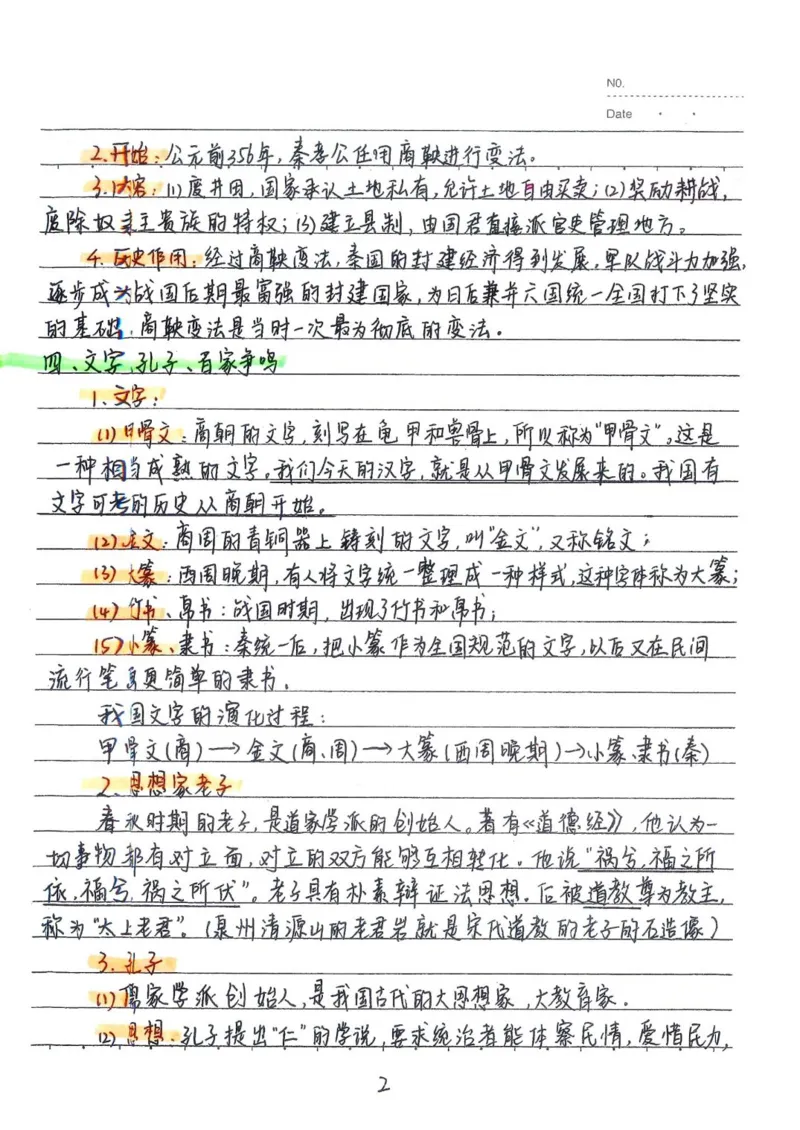 NO.
Date
2.开始:公元前356年,秦孝公任用商鞅进行变法。
3.内容:(1)废井田,国家承认土地私有,允许土地自由买卖;(2)奖励耕战,
废除奴隶主贵族的特权;(3)建立县制,由国君直接派官吏管理地方。
4.历史作用:经过商鞅变法,秦国的封建经济得到发展,军队战斗力加强,
逐步成为战国后期最富强的封建国家,为日后兼并六国统一全国打下了坚实
的基础,商鞅变法是当时一次最为彻底的变法。
四、文字、孔子、百家争鸣
1.文字:
(1)甲骨文:商朝的文字,刻写在龟甲和兽骨上,所以称为“甲骨文”。这是
一种相当成熟的文字。我们今天的汉字,就是从甲骨文发展来的。我国有
文字可考的历史从商朝开始。
(2)金文:商周的青铜器上铸刻的文字,叫“金文”,又称铭文;
(3)大篆:西周晚期,有人将文字统一整理成一种样式,这种字体称为大篆;
(4)竹书、帛书:战国时期,出现了竹书和帛书;
(5)小篆、隶书:秦统一后,把小篆作为全国规范的文字,以后又在民间
流行笔更简单的隶书。
我国文字的演化过程:
甲骨文(商)→金文(商、周)→大篆(西周晚期)→小篆、隶书(秦)
2、思想家老子
春秋时期的老子,是道家学派的创始人。著有《道德经》,他认为一
切事物都有对立面,对立的双方能够互相转化。他说“祸兮,福之所
依,福兮,祸之所伏”。老子具有朴素辩证法思想。后被道教尊为教主,
称为“太上老君”。(泉州清源山的老君岩就是宋代道教的老子的石造像)
3.孔子
(1)儒家学派创始人,是我国古代的大思想家,大教育家.
(2)思想.孔子提出“仁”的学说,要求统治者能体察民情,爱惜民力,
2